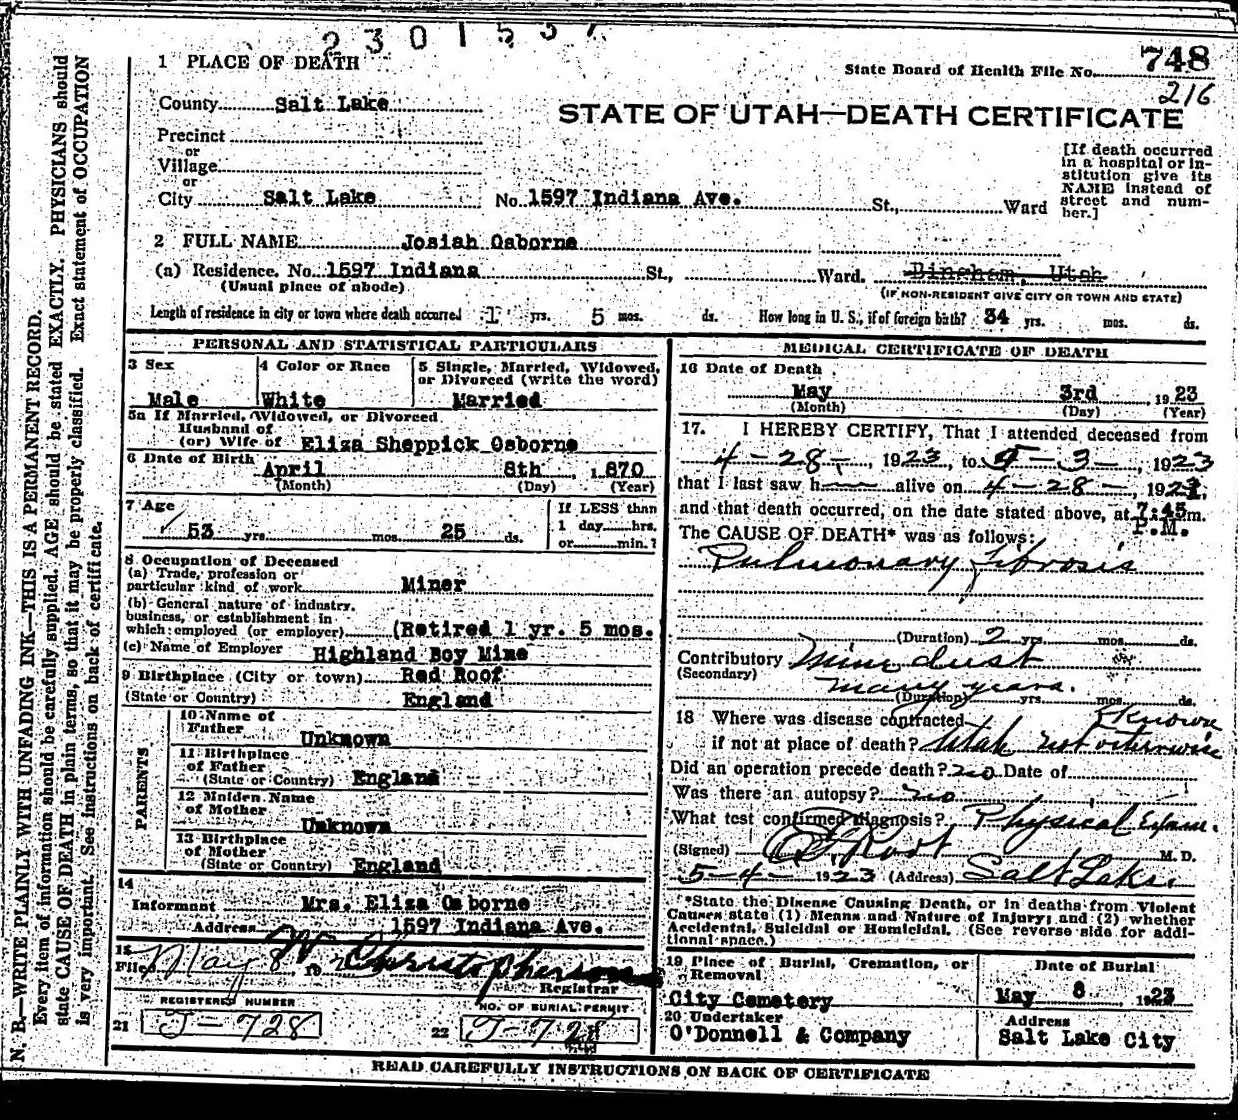 2301537
748
216
1 PLACE OF DEATH
State Board of Health File No.
County Salt Lake
STATE OF UTAH—DEATH CERTIFICATE
Precinct
or
Village
or
City Salt Lake No. 1597 Indiana Ave. St., Ward
[If death occurred in a hospital or institution give its NAME instead of street and number.]
2 FULL NAME Josiah Osborne
(a) Residence. No. 1597 Indiana St., Ward. Bingham, Utah
(Usual place of abode) (IF NON-RESIDENT GIVE CITY OR TOWN AND STATE)
Length of residence in city or town where death occurred 1 yrs. 5 mos. ds. How long in U. S., if of foreign birth? 34 yrs. mos. ds.
PERSONAL AND STATISTICAL PARTICULARS
3 Sex
Male
4 Color or Race
White
5 Single, Married, Widowed, or Divorced (write the word)
Married
5a If Married, Widowed, or Divorced
Husband of
(or) Wife of Eliza Sheppick Osborne
6 Date of Birth
April 8th, 1870
(Month) (Day) (Year)
7 Age
53 yrs. mos. 25 ds.
If LESS than
1 day......hrs.
or......min.?
8 Occupation of Deceased
(a) Trade, profession or
particular kind of work Miner
(b) General nature of industry,
business, or establishment in
which employed (or employer) (Retired 1 yr. 5 mos.
(c) Name of Employer Highland Boy Mine
9 Birthplace (City or town) Red Roof
(State or Country) England
PARENTS
10 Name of
Father Unknown
11 Birthplace
of Father
(State or Country) England
12 Maiden Name
of Mother
Unknown
13 Birthplace
of Mother
(State or Country) England
14
Informant Mrs. Eliza Osborne
Address 1597 Indiana Ave.
15
Filed May 8 19 Christopherson
Registrar
REGISTERED NUMBER
21 J-728
NO. OF BURIAL PERMIT
22 J-728
MEDICAL CERTIFICATE OF DEATH
16 Date of Death
May 3rd, 1923
(Month) (Day) (Year)
17. I HEREBY CERTIFY, That I attended deceased from
4-28-, 1923, to 5-3-, 1923
that I last saw h alive on 4-28-, 1923,
and that death occurred, on the date stated above, at 7:45 m.
P.M.
The CAUSE OF DEATH* was as follows:
Pulmonary fibrosis
(Duration) 2 yrs. mos. ds.
Contributory Mine dust
(Secondary)
many years.
(Duration) yrs. mos. ds.
18 Where was disease contracted
if not at place of death? Utah not otherwise known
Did an operation precede death? no Date of
Was there an autopsy? no
What test confirmed diagnosis? Physical Exam.
(Signed) Root M. D.
5-4- 1923 (Address) Salt Lake
*State the Disease Causing Death, or in deaths from Violent
Causes state (1) Means and Nature of Injury; and (2) whether
Accidental, Suicidal or Homicidal. (See reverse side for addi-
tional space.)
19 Place of Burial, Cremation, or
Removal
City Cemetery
Date of Burial
May 8 1923
20 Undertaker
O'Donnell & Company
Address
Salt Lake City
READ CAREFULLY INSTRUCTIONS ON BACK OF CERTIFICATE
N. B.—WRITE PLAINLY WITH UNFADING INK—THIS IS A PERMANENT RECORD.
Every item of information should be carefully supplied. AGE should be stated EXACTLY. PHYSICIANS should
state CAUSE OF DEATH in plain terms, so that it may be properly classified. Exact statement of OCCUPATION
is very important. See instructions on back of certificate.